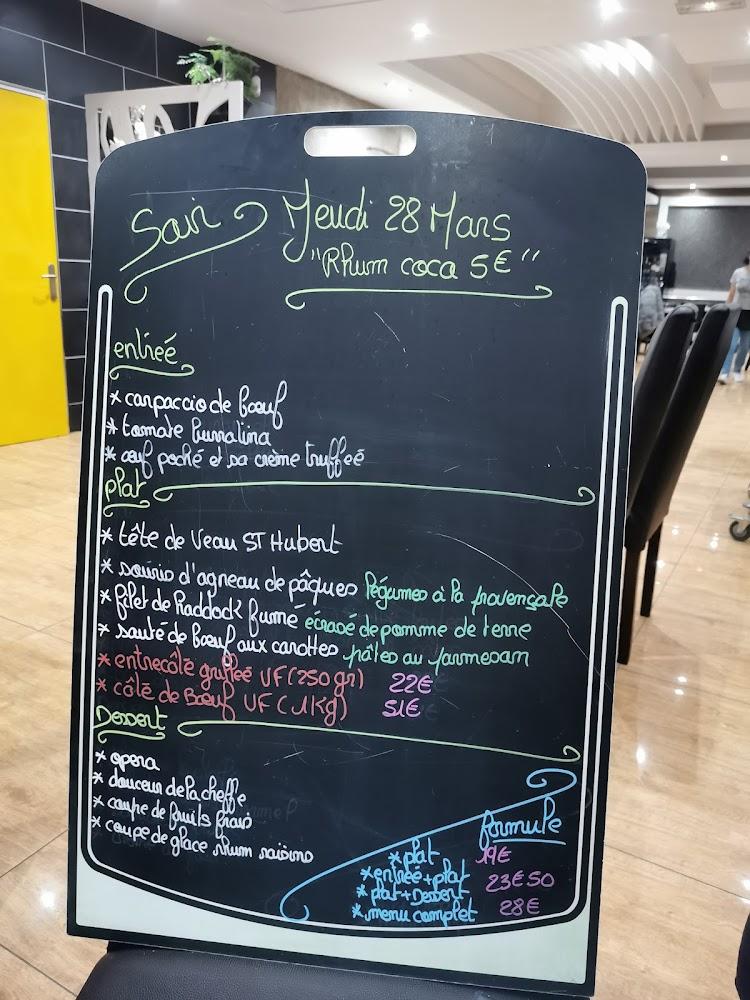 Soir Jeudi 28 Mars
"Rhum coca 5€"
entrée
* carpaccio de bœuf
* tomate burratina
* œuf poché et sa crème truffeé
plat
* tête de Veau ST Hubert
* souris d'agneau de pâques légumes à la provençale
* filet de Haddock fumé écrasé de pomme de terre
* sauté de bœuf aux carottes pâtes au parmesan
* entrecôte grilleé VF (250gr) 22€
* côte de Bœuf VF (1Kg) 51€
Dessert
* opera
* douceur de la cheffe
* coupe de fruits frais
* coupe de glace rhum raisins
formule
* plat 19€
* entrée + plat
* plat + Dessert 23€50
* menu complet 28€